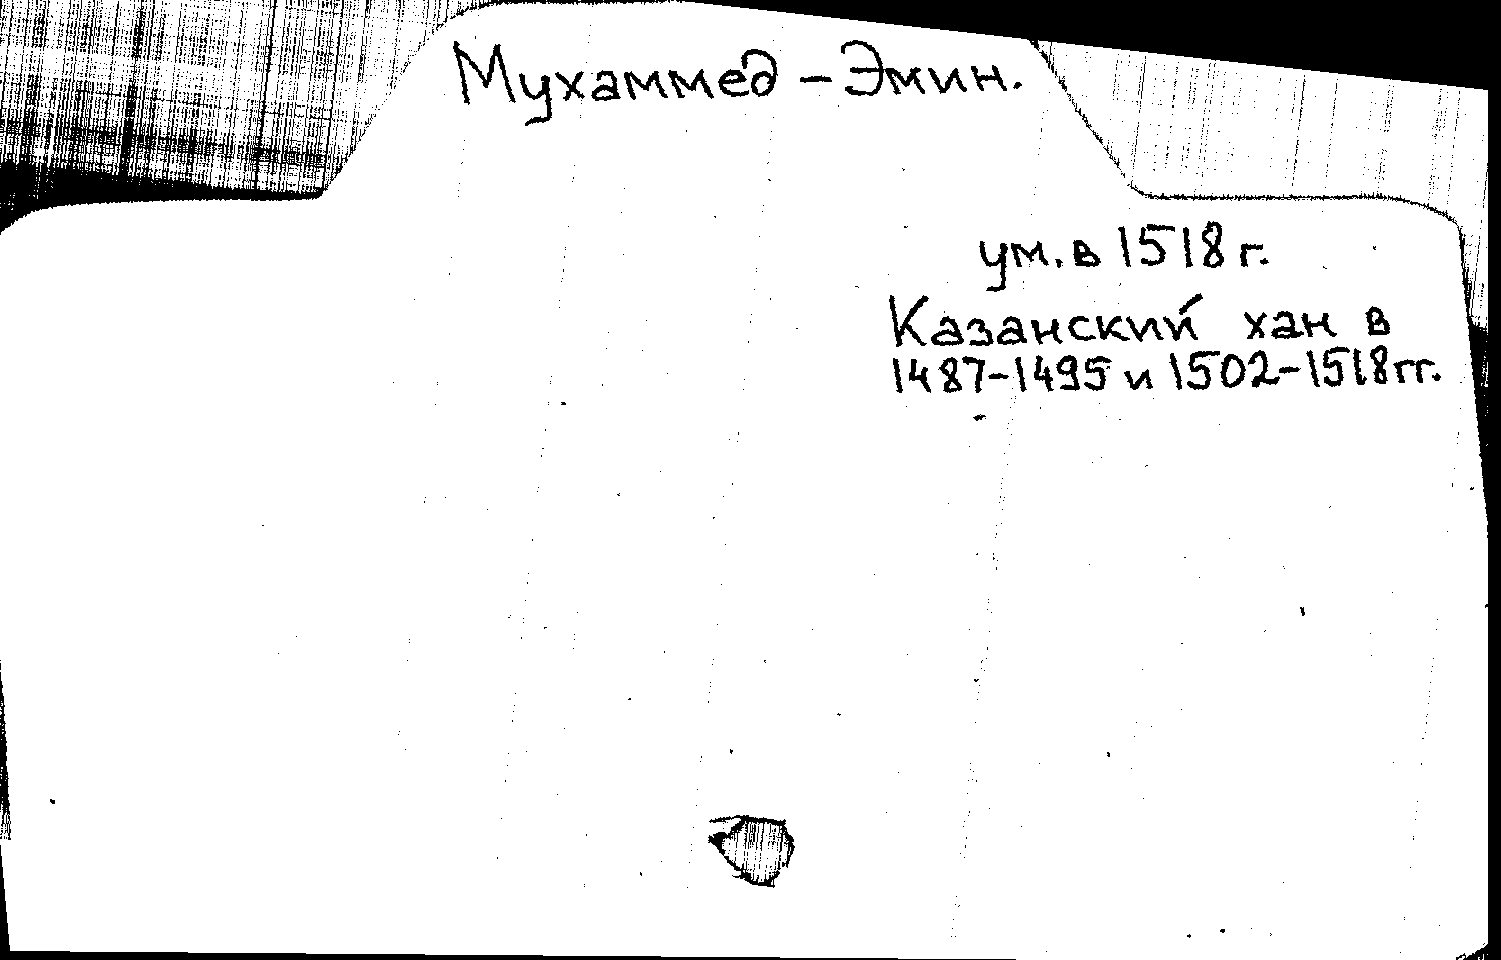 Мухаммед - Эмин.
ум. в 1518 г.
Казанский хан в
1487-1495 и 1502-1518 гг.